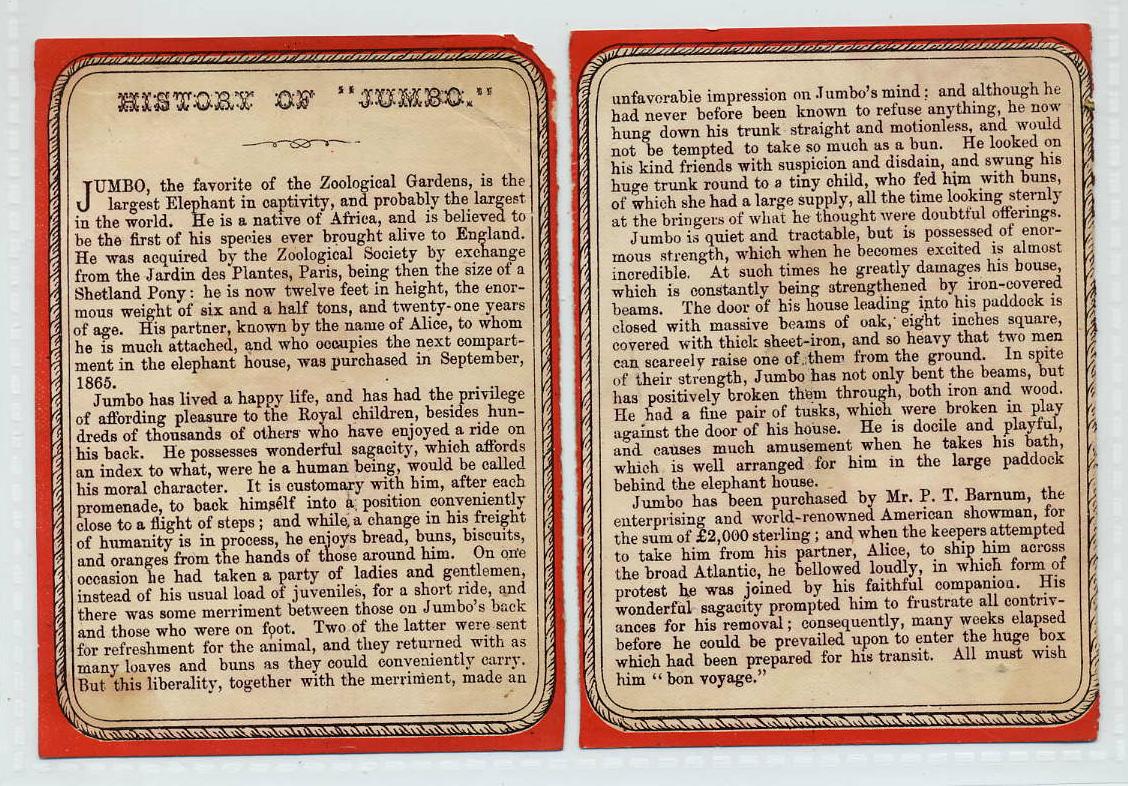 HISTORY OF "JUMBO."
JUMBO, the favorite of the Zoological Gardens, is the
largest Elephant in captivity, and probably the largest
in the world. He is a native of Africa, and is believed to
be the first of his species ever brought alive to England.
He was acquired by the Zoological Society by exchange
from the Jardin des Plantes, Paris, being then the size of a
Shetland Pony: he is now twelve feet in height, the enor-
mous weight of six and a half tons, and twenty-one years
of age. His partner, known by the name of Alice, to whom
he is much attached, and who occupies the next compart-
ment in the elephant house, was purchased in September,
1865.
Jumbo has lived a happy life, and has had the privilege
of affording pleasure to the Royal children, besides hun-
dreds of thousands of others who have enjoyed a ride on
his back. He possesses wonderful sagacity, which affords
an index to what, were he a human being, would be called
his moral character. It is customary with him, after each
promenade, to back himself into a position conveniently
close to a flight of steps; and while a change in his freight
of humanity is in process, he enjoys bread, buns, biscuits,
and oranges from the hands of those around him. On one
occasion he had taken a party of ladies and gentlemen,
instead of his usual load of juveniles, for a short ride, and
there was some merriment between those on Jumbo's back
and those who were on foot. Two of the latter were sent
for refreshment for the animal, and they returned with as
many loaves and buns as they could conveniently carry.
But this liberality, together with the merriment, made an
unfavorable impression on Jumbo's mind; and although he
had never before been known to refuse anything, he now
hung down his trunk straight and motionless, and would
not be tempted to take so much as a bun. He looked on
his kind friends with suspicion and disdain, and swung his
huge trunk round to a tiny child, who fed him with buns,
of which she had a large supply, all the time looking sternly
at the bringers of what he thought were doubtful offerings.
Jumbo is quiet and tractable, but is possessed of enor-
mous strength, which when he becomes excited is almost
incredible. At such times he greatly damages his house,
which is constantly being strengthened by iron-covered
beams. The door of his house leading into his paddock is
closed with massive beams of oak, eight inches square,
covered with thick sheet-iron, and so heavy that two men
can scarcely raise one of them from the ground. In spite
of their strength, Jumbo has not only bent the beams, but
has positively broken them through, both iron and wood.
He had a fine pair of tusks, which were broken in play
against the door of his house. He is docile and playful,
and causes much amusement when he takes his bath,
which is well arranged for him in the large paddock
behind the elephant house.
Jumbo has been purchased by Mr. P. T. Barnum, the
enterprising and world-renowned American showman, for
the sum of £2,000 sterling; and when the keepers attempted
to take him from his partner, Alice, to ship him across
the broad Atlantic, he bellowed loudly, in which form of
protest he was joined by his faithful companion. His
wonderful sagacity prompted him to frustrate all contriv-
ances for his removal; consequently, many weeks elapsed
before he could be prevailed upon to enter the huge box
which had been prepared for his transit. All must wish
him "bon voyage."